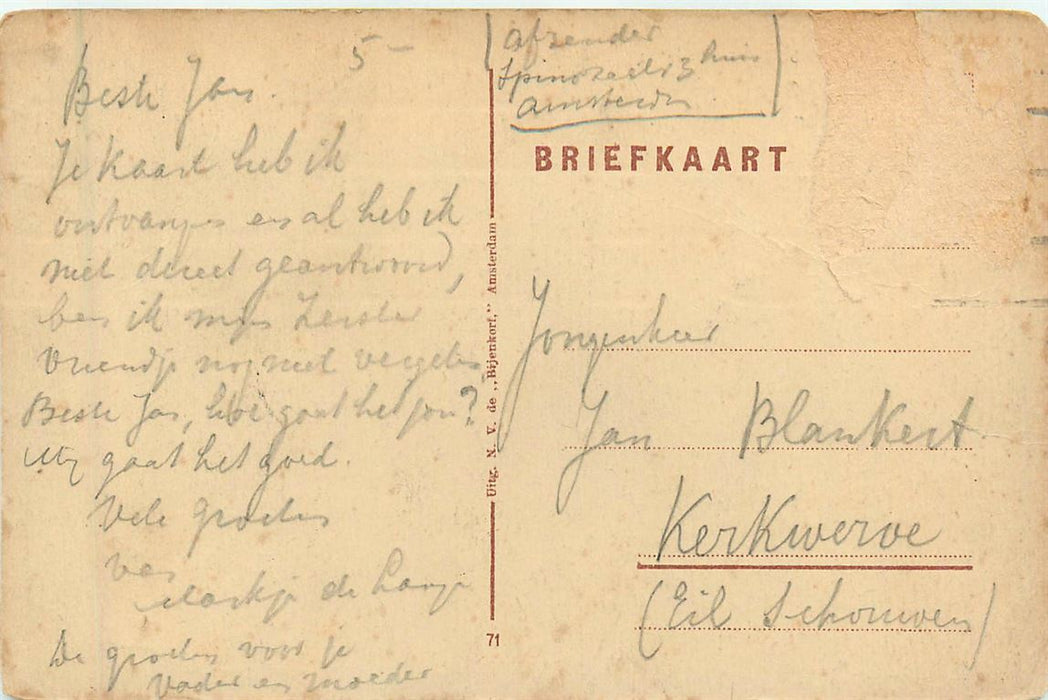 5-
Beste Jan.
Je kaart heb ik
ontvangen en al heb ik
niet direct geantwoord,
ben ik mijn Zeeuse
vriendje nog niet vergeten
Beste Jan, hoe gaat het jou?
Mij gaat het goed.
Vele groeten
van
de Lange
De groeten voor je
Vader en moeder
Uitg. N. V. de „Bijenkorf," Amsterdam
71
(afzender
huis
Amsterdam)
BRIEFKAART
Jongenheer
Jan Blankert
Kerkwerve
(Eil Schouwen)